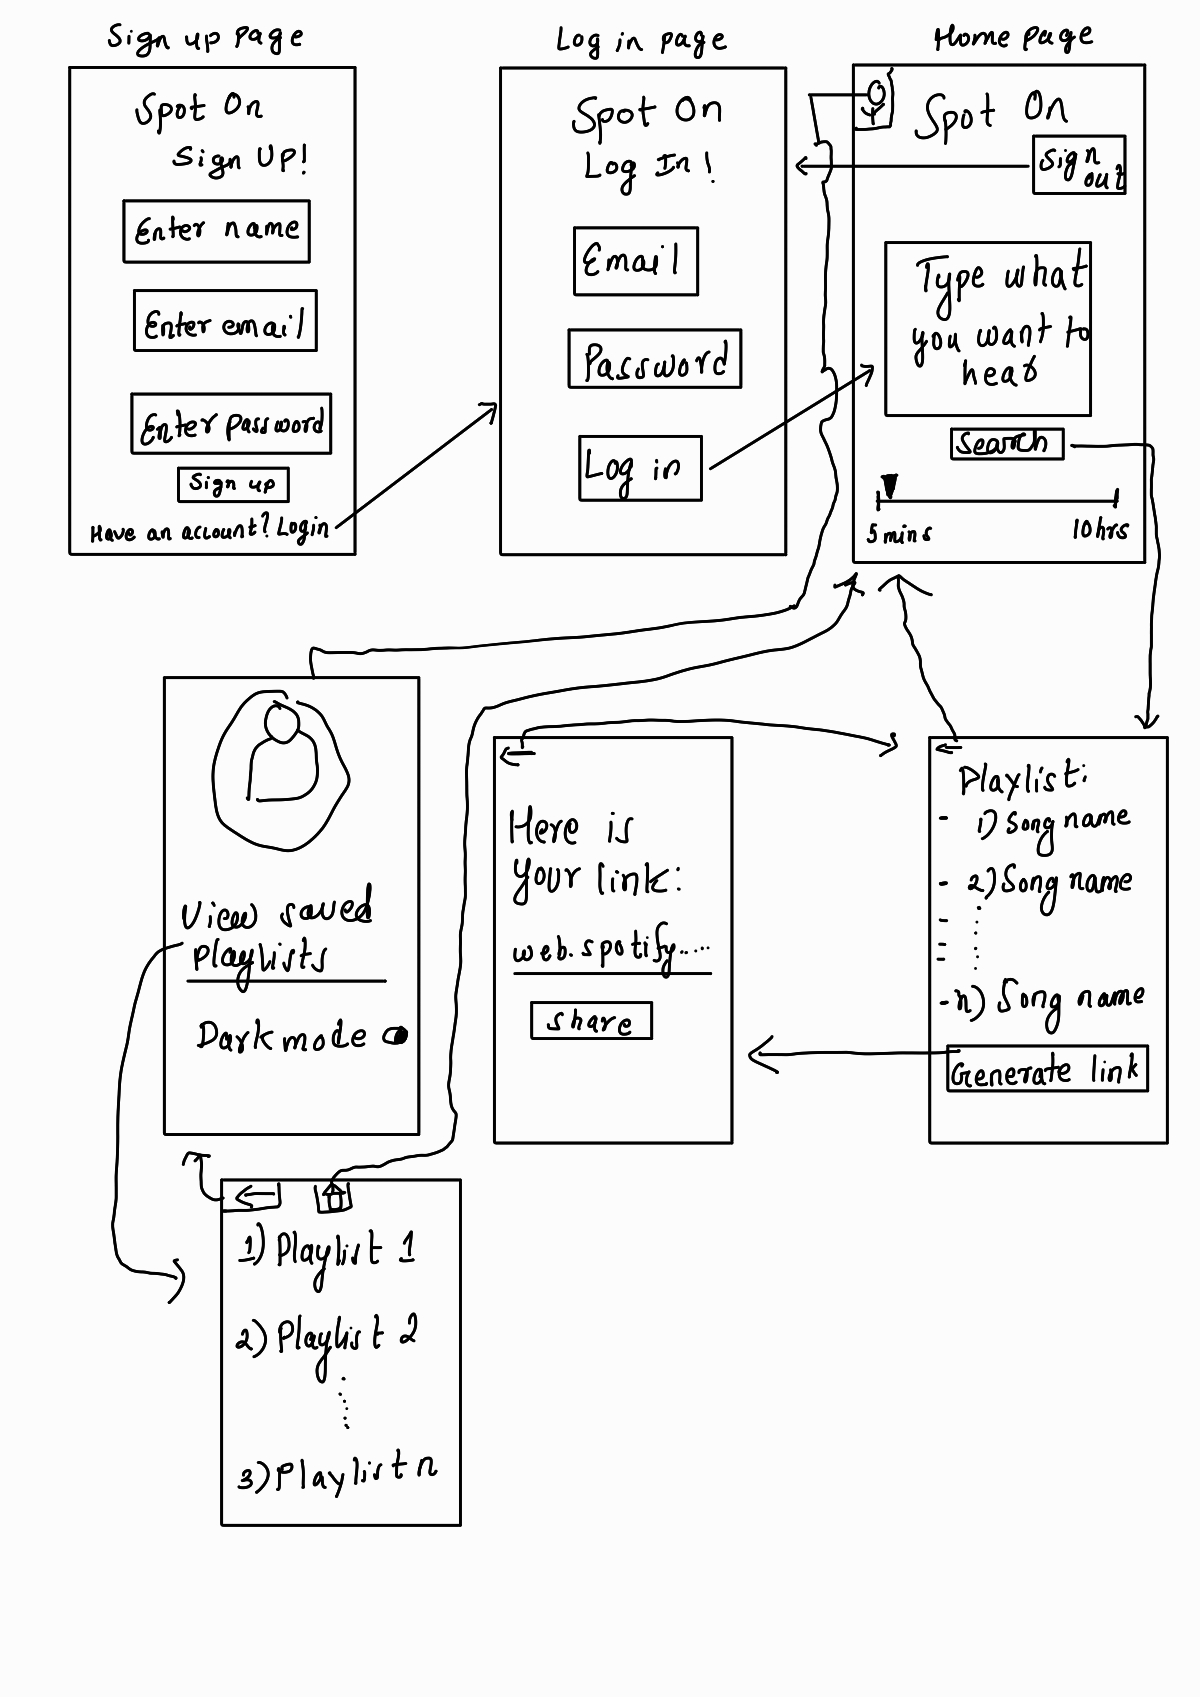 Sign up page
Spot On
Sign UP!
Enter name
Enter email
Enter password
Sign up
Have an account? Login
Log in page
Spot On
Log In!
Email
Password
Log in
Home page
Spot On
Sign
out
Type what
you want to
hear
Search
5 mins
10 hrs
View saved
playlists
Dark mode
Here is
your link:
web.spotify....
share
Playlist:
- 1) Song name
- 2) Song name
-
-
-
- n) Song name
Generate link
1) Playlist 1
2) Playlist 2
3) Playlist n